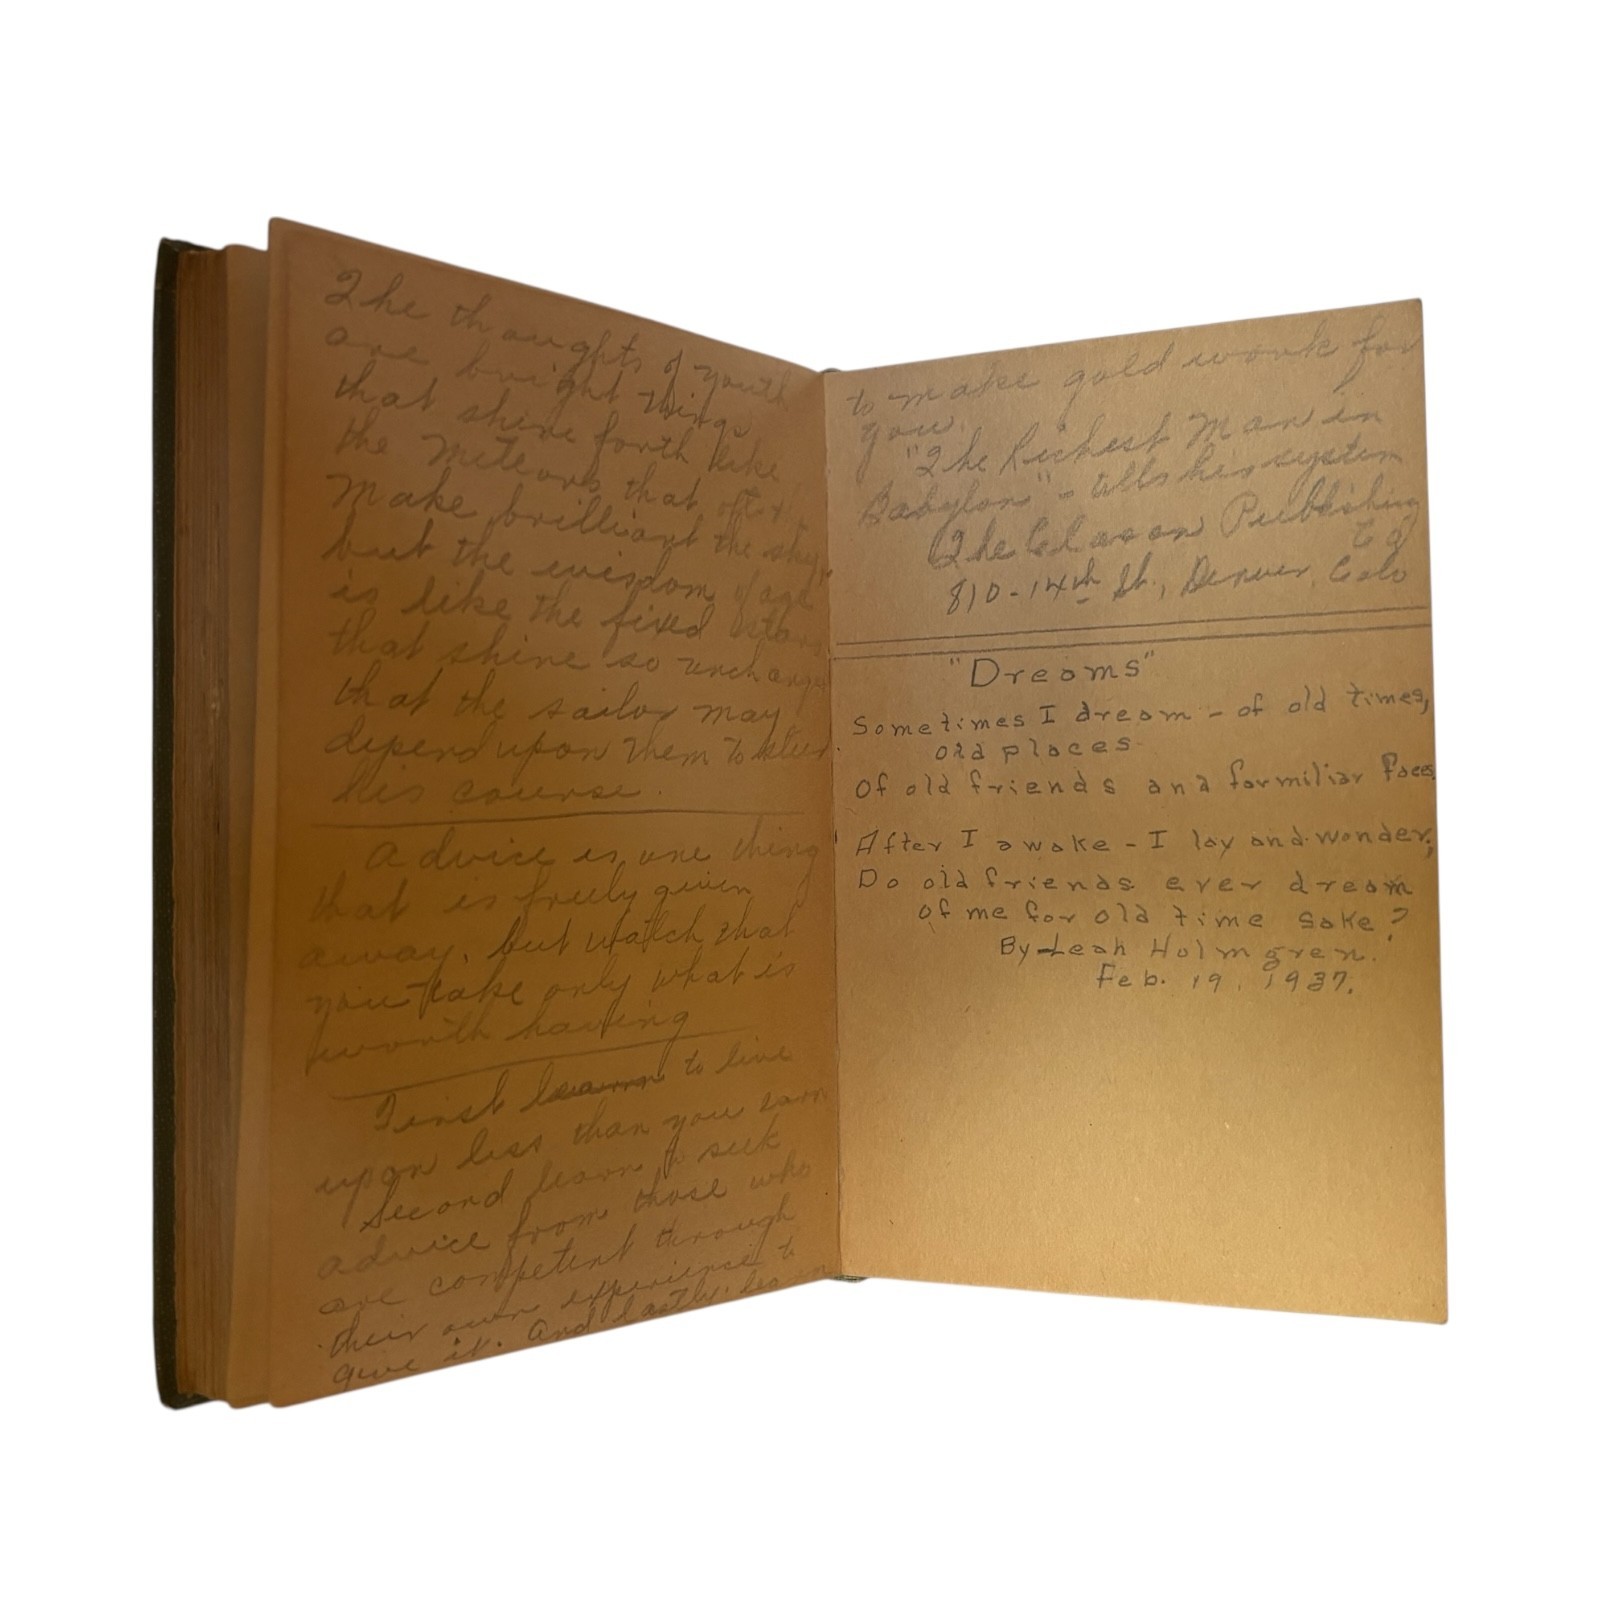 The thoughts of youth
are bright things
that shine forth like
the meteors that oft
make brilliant the sky,
but the wisdom of age
is like the fixed stars
that shine so unchanged
that the sailor may
depend upon them to steer
his course.
Advice is one thing
that is freely given
away, but watch that
you take only what is
worth having
First learn to live
upon less than you earn
Second learn to seek
advice from those who
are competent through
their own experience to
give it. And lastly, learn
to make gold work for
you.
"The Richest Man in
Babylon" - tells his system
The Clason Publishing
Co
810-14th St., Denver, Colo
"Dreams"
Sometimes I dream - of old times,
old places
Of old friends and formiliar faces.
After I awake - I lay and wonder,
Do old friends ever dream
of me for old time sake?
By Leah Holmgren.
Feb. 19, 1937.